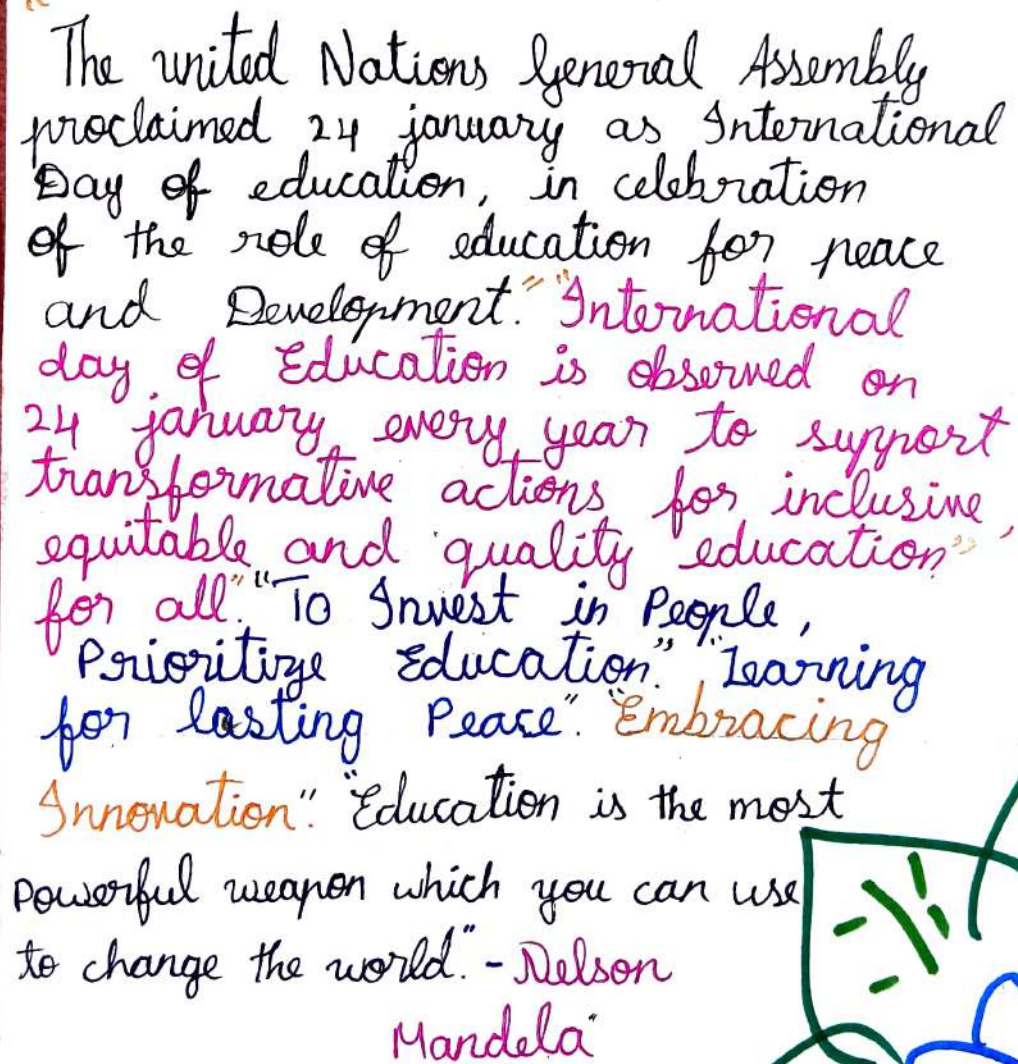 "
The united Nations General Assembly
proclaimed 24 january as International
Day of education, in celebration
of the role of education for peace
and Development." "International
day of Education is observed on
24 january every year to support
transformative actions for inclusive,
equitable and quality education"
for all." "To Invest in People,
Prioritize Education." "Learning
for lasting Peace". "Embracing
Innovation". "Education is the most
Powerful weapon which you can use
to change the world." - Nelson
Mandela"